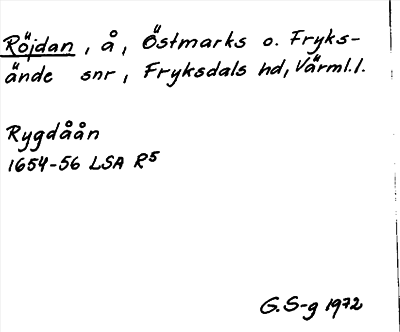 Röjdan, å, Östmarks o. Fryks-
ände snr, Fryksdals hd, Värml.l.
Rygdåån
1654-56 LSA R5
G. S-g 1972